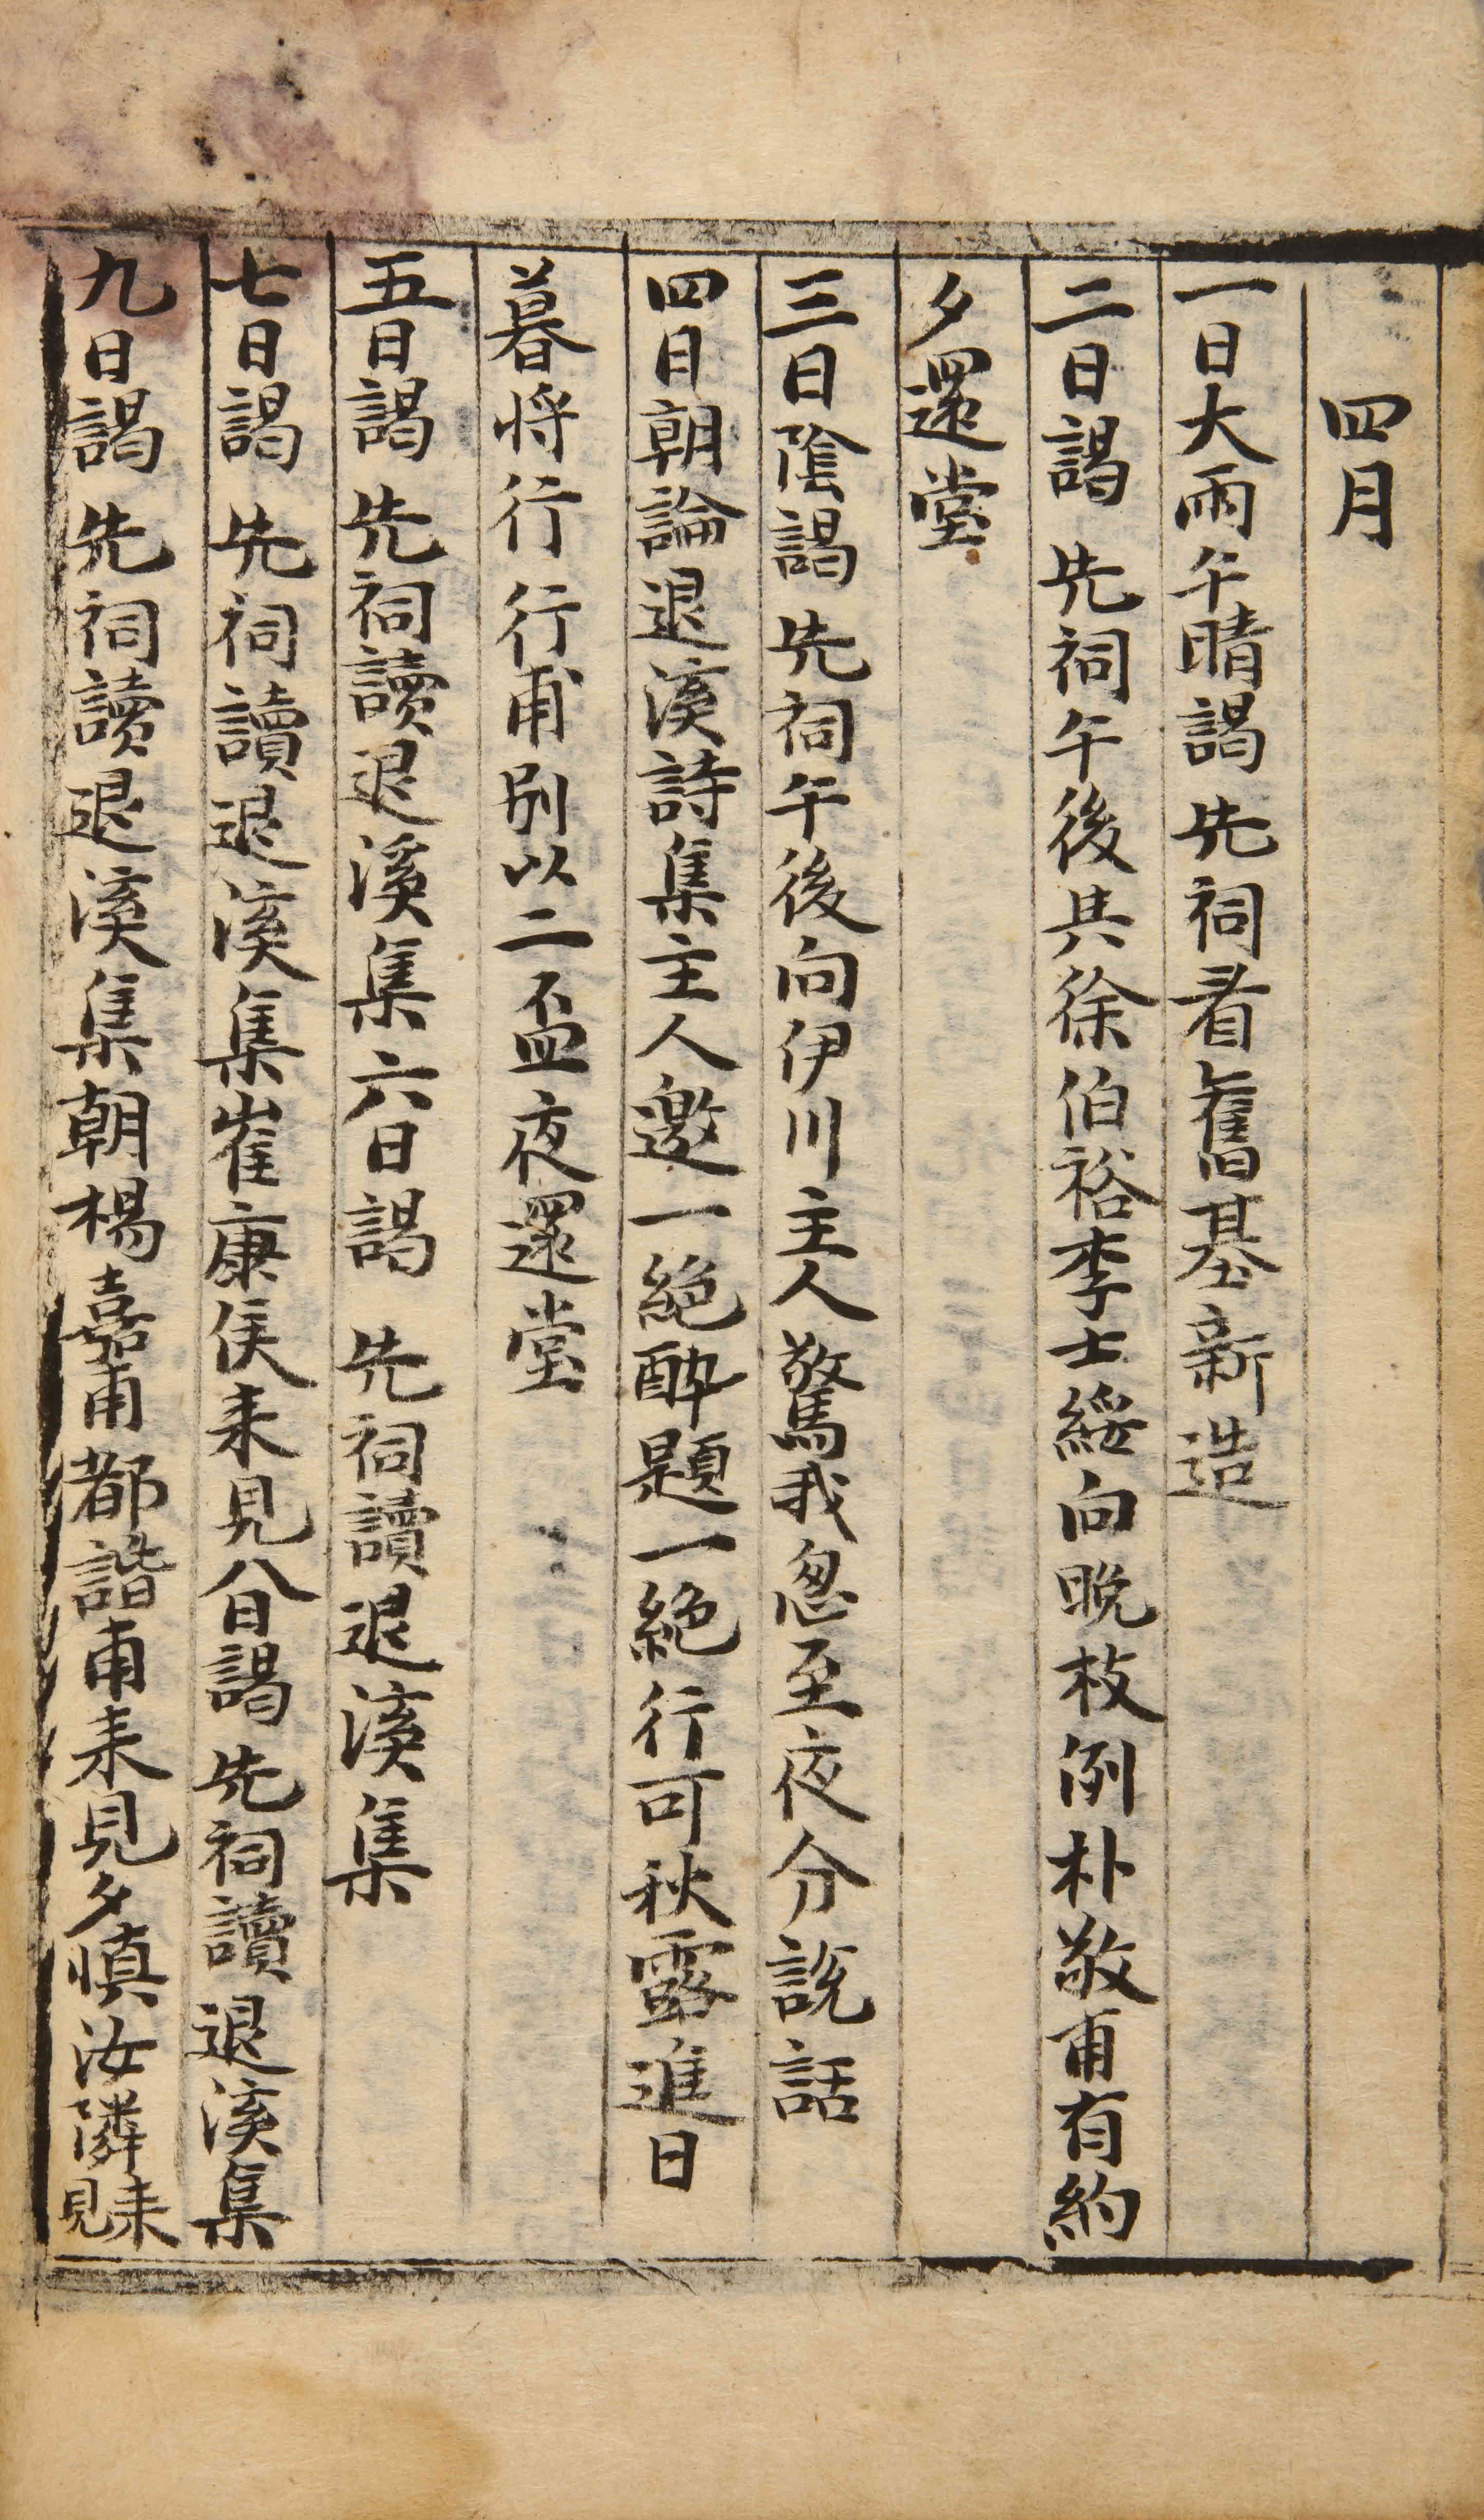 四月
一日大雨午晴謁 先祠看舊基新造
二日謁 先祠午後共徐伯裕李士綏向晩枝例朴敬甫有約
夕還堂
三日陰謁 先祠午後向伊川主人驚我忽至夜分說話
四日朝論退溪詩集主人邀一絶酔題一絶行可秋露進日
暮将行行甫別以二盃夜還堂
五日謁 先祠讀退溪集六日謁 先祠讀退溪集
七日謁 先祠讀退溪集崔康侯来見八日謁 先祠讀退溪集
九日謁 先祠讀退溪集朝楊嘉甫都諧甫来見夕愼汝隣来見